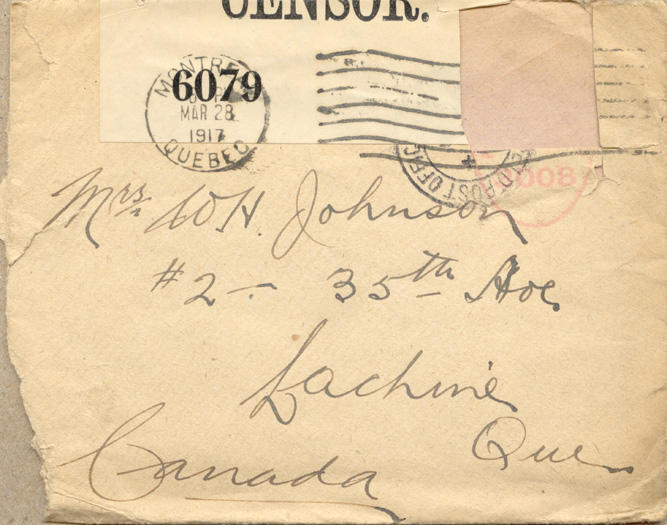 CENSOR.
6079
MONTREAL
MAR 28
1917
QUEBEC
POST OFFIC
3008
Mrs. W. H. Johnson
#2 - 35th Ave.
Lachine
Que.
Canada